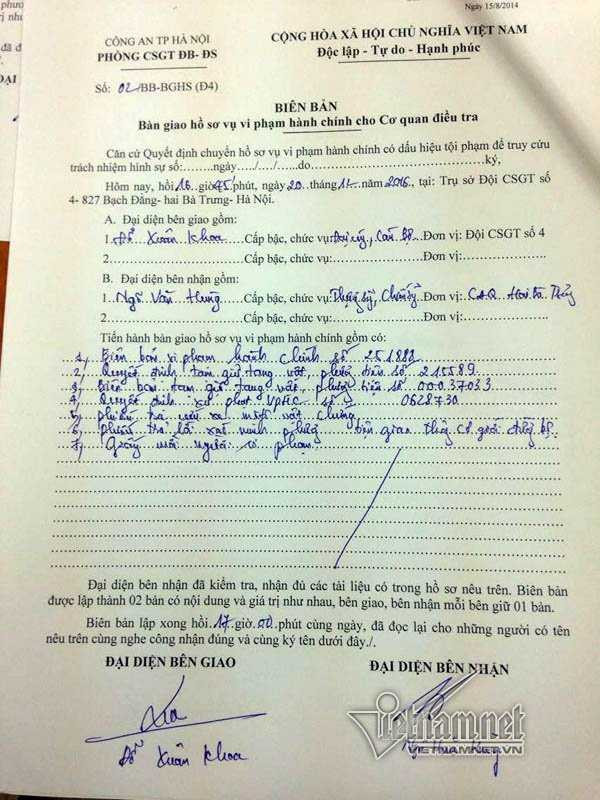 Ngày 15/8/2014
CÔNG AN TP HÀ NỘI
PHÒNG CSGT ĐB- ĐS
CỘNG HÒA XÃ HỘI CHỦ NGHĨA VIỆT NAM
Độc lập - Tự do - Hạnh phúc
Số: 02/BB-BGHS (Đ4)
BIÊN BẢN
Bàn giao hồ sơ vụ vi phạm hành chính cho Cơ quan điều tra
Căn cứ Quyết định chuyển hồ sơ vụ vi phạm hành chính có dấu hiệu tội phạm để truy cứu
trách nhiệm hình sự số:........ngày..../..../.....do................................................ký,
Hôm nay, hồi 16 giờ 45 phút, ngày 20 tháng 12 năm 2016, tại: Trụ sở Đội CSGT số
4- 827 Bạch Đằng- hai Bà Trưng- Hà Nội.
A. Đại diện bên giao gồm:
1. Đỗ Xuân Khoa Cấp bậc, chức vụ: Đại úy, Cán bộ Đơn vị: Đội CSGT số 4
2............................Cấp bậc, chức vụ:....................Đơn vị:....................
B. Đại diện bên nhận gồm:
1. Ngô Văn Hưng Cấp bậc, chức vụ: Thượng sỹ, Chiến sỹ Đơn vị: CAQ Hai Bà Trưng
2............................Cấp bậc, chức vụ:....................Đơn vị:....................
Tiến hành bàn giao hồ sơ vụ vi phạm hành chính gồm có:
1, Biên bản vi phạm hành chính số 251888
2, Quyết định tạm giữ tang vật, phương tiện số 215589
3, Biên bản tạm giữ tang vật, phương tiện số 00037033
4, Quyết định xử phạt VPHC số 0628730
5, phiếu tra cứu xe mất vật chứng
6, phiếu trả lời xác minh phương tiện giao thông CS giới đường bộ
7, Quẩy mũi người vi phạm
Đại diện bên nhận đã kiểm tra, nhận đủ các tài liệu có trong hồ sơ nêu trên. Biên bản
được lập thành 02 bản có nội dung và giá trị như nhau, bên giao, bên nhận mỗi bên giữ 01 bản.
Biên bản lập xong hồi 17 giờ 00 phút cùng ngày, đã đọc lại cho những người có tên
nêu trên cùng nghe công nhận đúng và cùng ký tên dưới đây./.
ĐẠI DIỆN BÊN GIAO
ĐẠI DIỆN BÊN NHẬN
Đỗ Xuân Khoa
vietnamnet
VIETNAMNET.VN